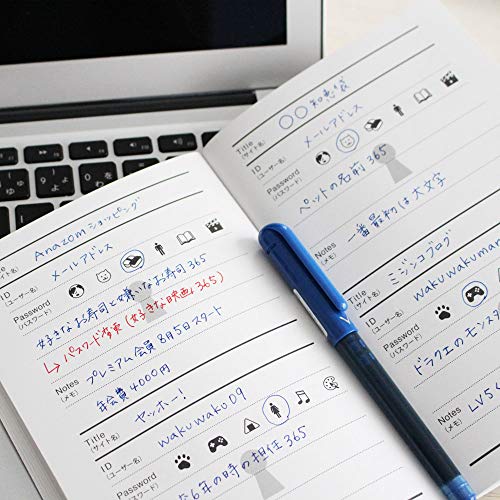 Title
(サイト名)
Anazomショッピング
ID
(ユーザー名)
メールアドレス
Password
(パスワード)
好きなお寿司と嫌いなお寿司365
↳パスワード変更(好きな映画し365)
Notes
(メモ)
プレミアム会員8月5日スタート
年会費4000円
Title
(サイト名)
ヤッホー!
ID
(ユーザー名)
wakuwaku09
Password
(パスワード)
6年の時の担任365
Title
(サイト名)
○○知恵袋
ID
(ユーザー名)
メールアドレス
Password
(パスワード)
ペットの名前365
Notes
(メモ)
一番最初は大文字
Title
(サイト名)
ミジンコブログ
ID
(ユーザー名)
wakuwakuman
Password
(パスワード)
ドラクエのモンスタ
Notes
(メモ)
LV50